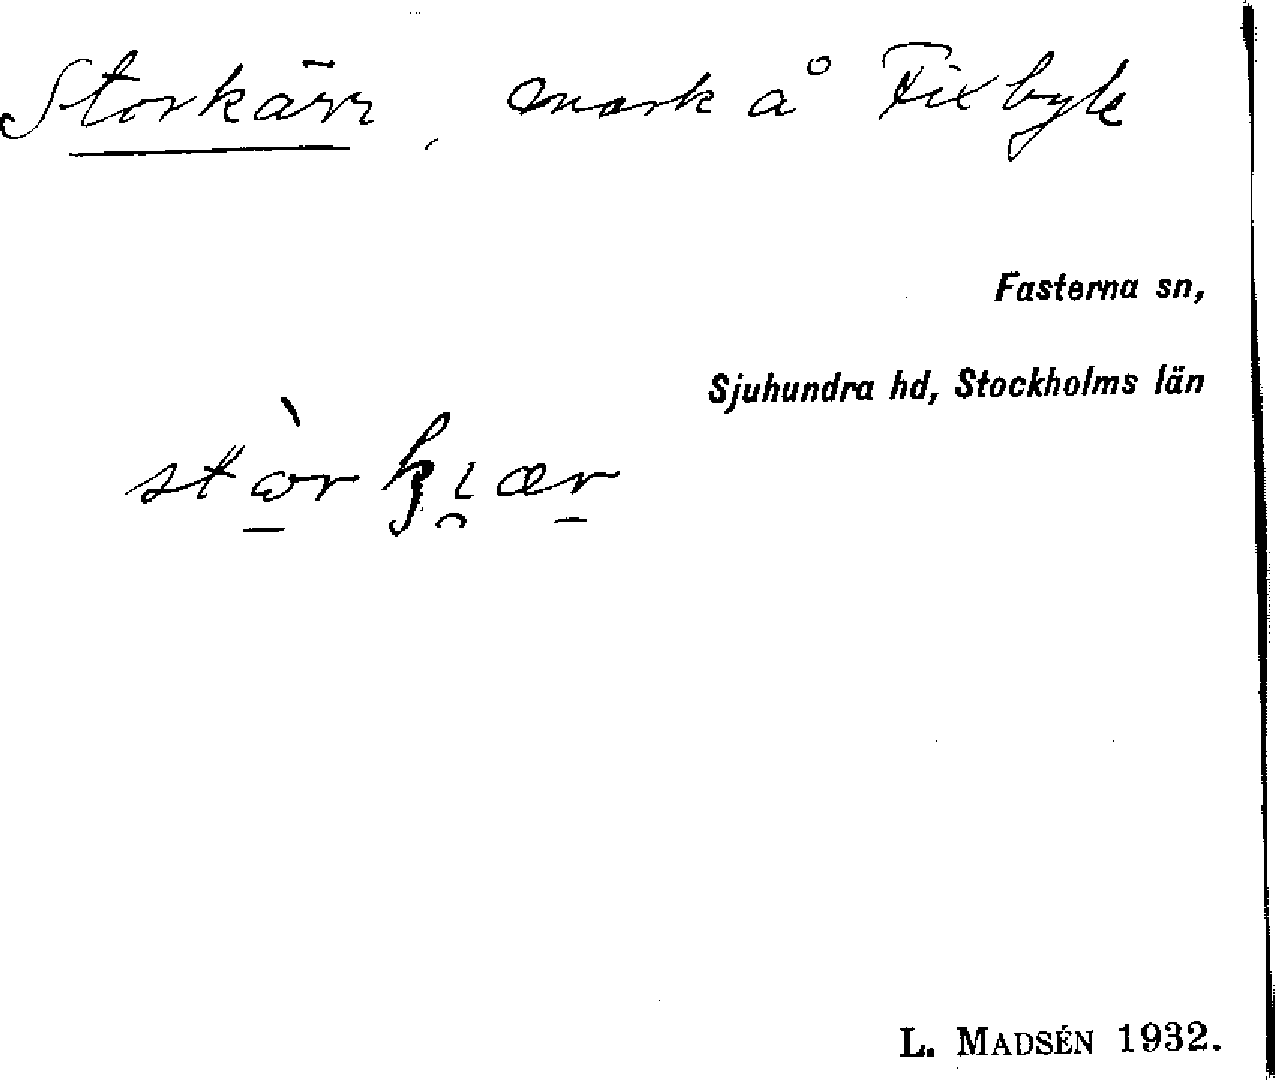 Storkärr, mark å Fixbyle
Fasterna sn,
Sjuhundra hd, Stockholms län
L. MADSÉN 1932.